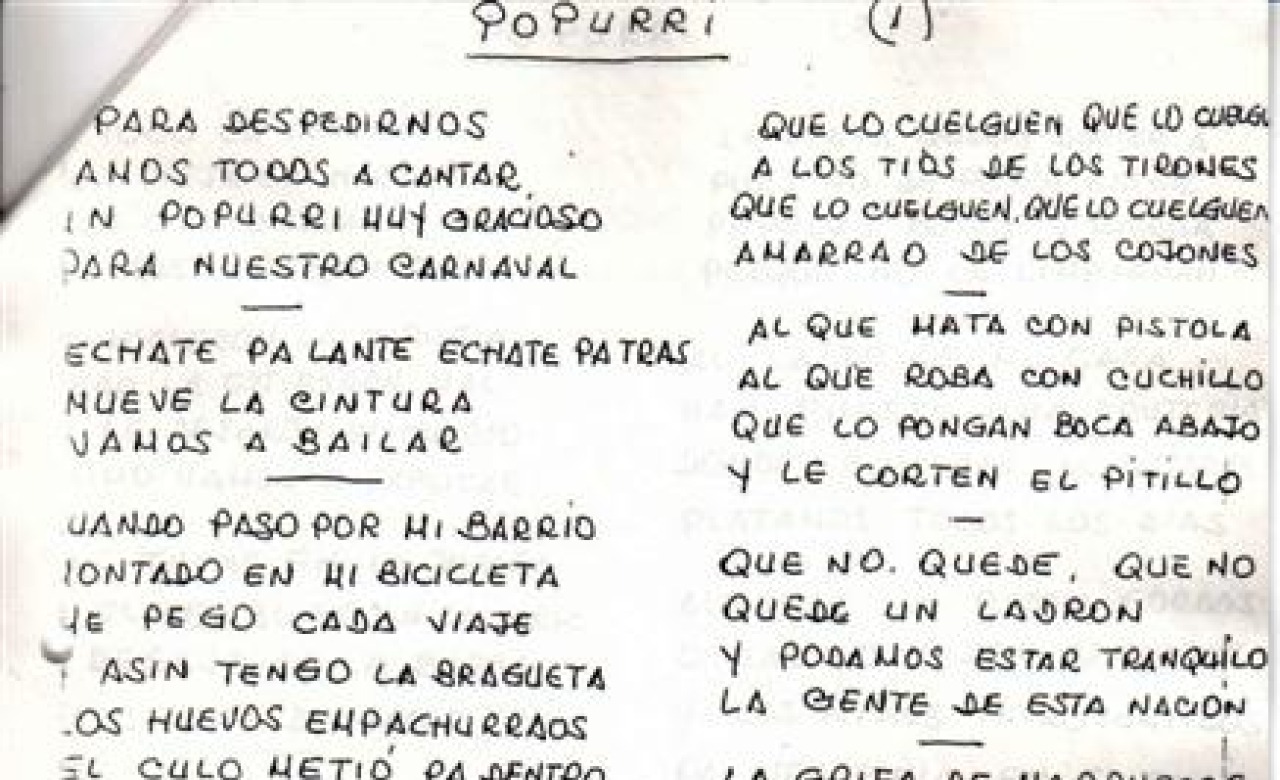 POPURRI (1)
PARA DESPEDIRNOS
AMOS TODOS A CANTAR
IN POPURRI MUY GRACIOSO
PARA NUESTRO CARNAVAL
ECHATE PA LANTE ECHATE PA TRAS
MUEVE LA CINTURA
VAMOS A BAILAR
UANDO PASO POR MI BARRIO
ONTADO EN MI BICICLETA
ME PEGO CADA VIAJE
ASIN TENGO LA BRAGUETA
OS HUEVOS EMPACHURRAOS
EL CULO METIÓ PA DENTRO
QUE LO CUELGUEN QUE LO CUELGU
A LOS TIOS DE LOS TIRONES
QUE LO CUELGUEN, QUE LO CUELGUEN
AMARRAO DE LOS COJONES
AL QUE MATA CON PISTOLA
AL QUE ROBA CON CUCHILLO
QUE LO PONGAN BOCA ABAJO
Y LE CORTEN EL PITILLO
QUE NO. QUEDE, QUE NO
QUEDE UN LADRON
Y PODAMOS ESTAR TRANQUILO
LA GENTE DE ESTA NACION